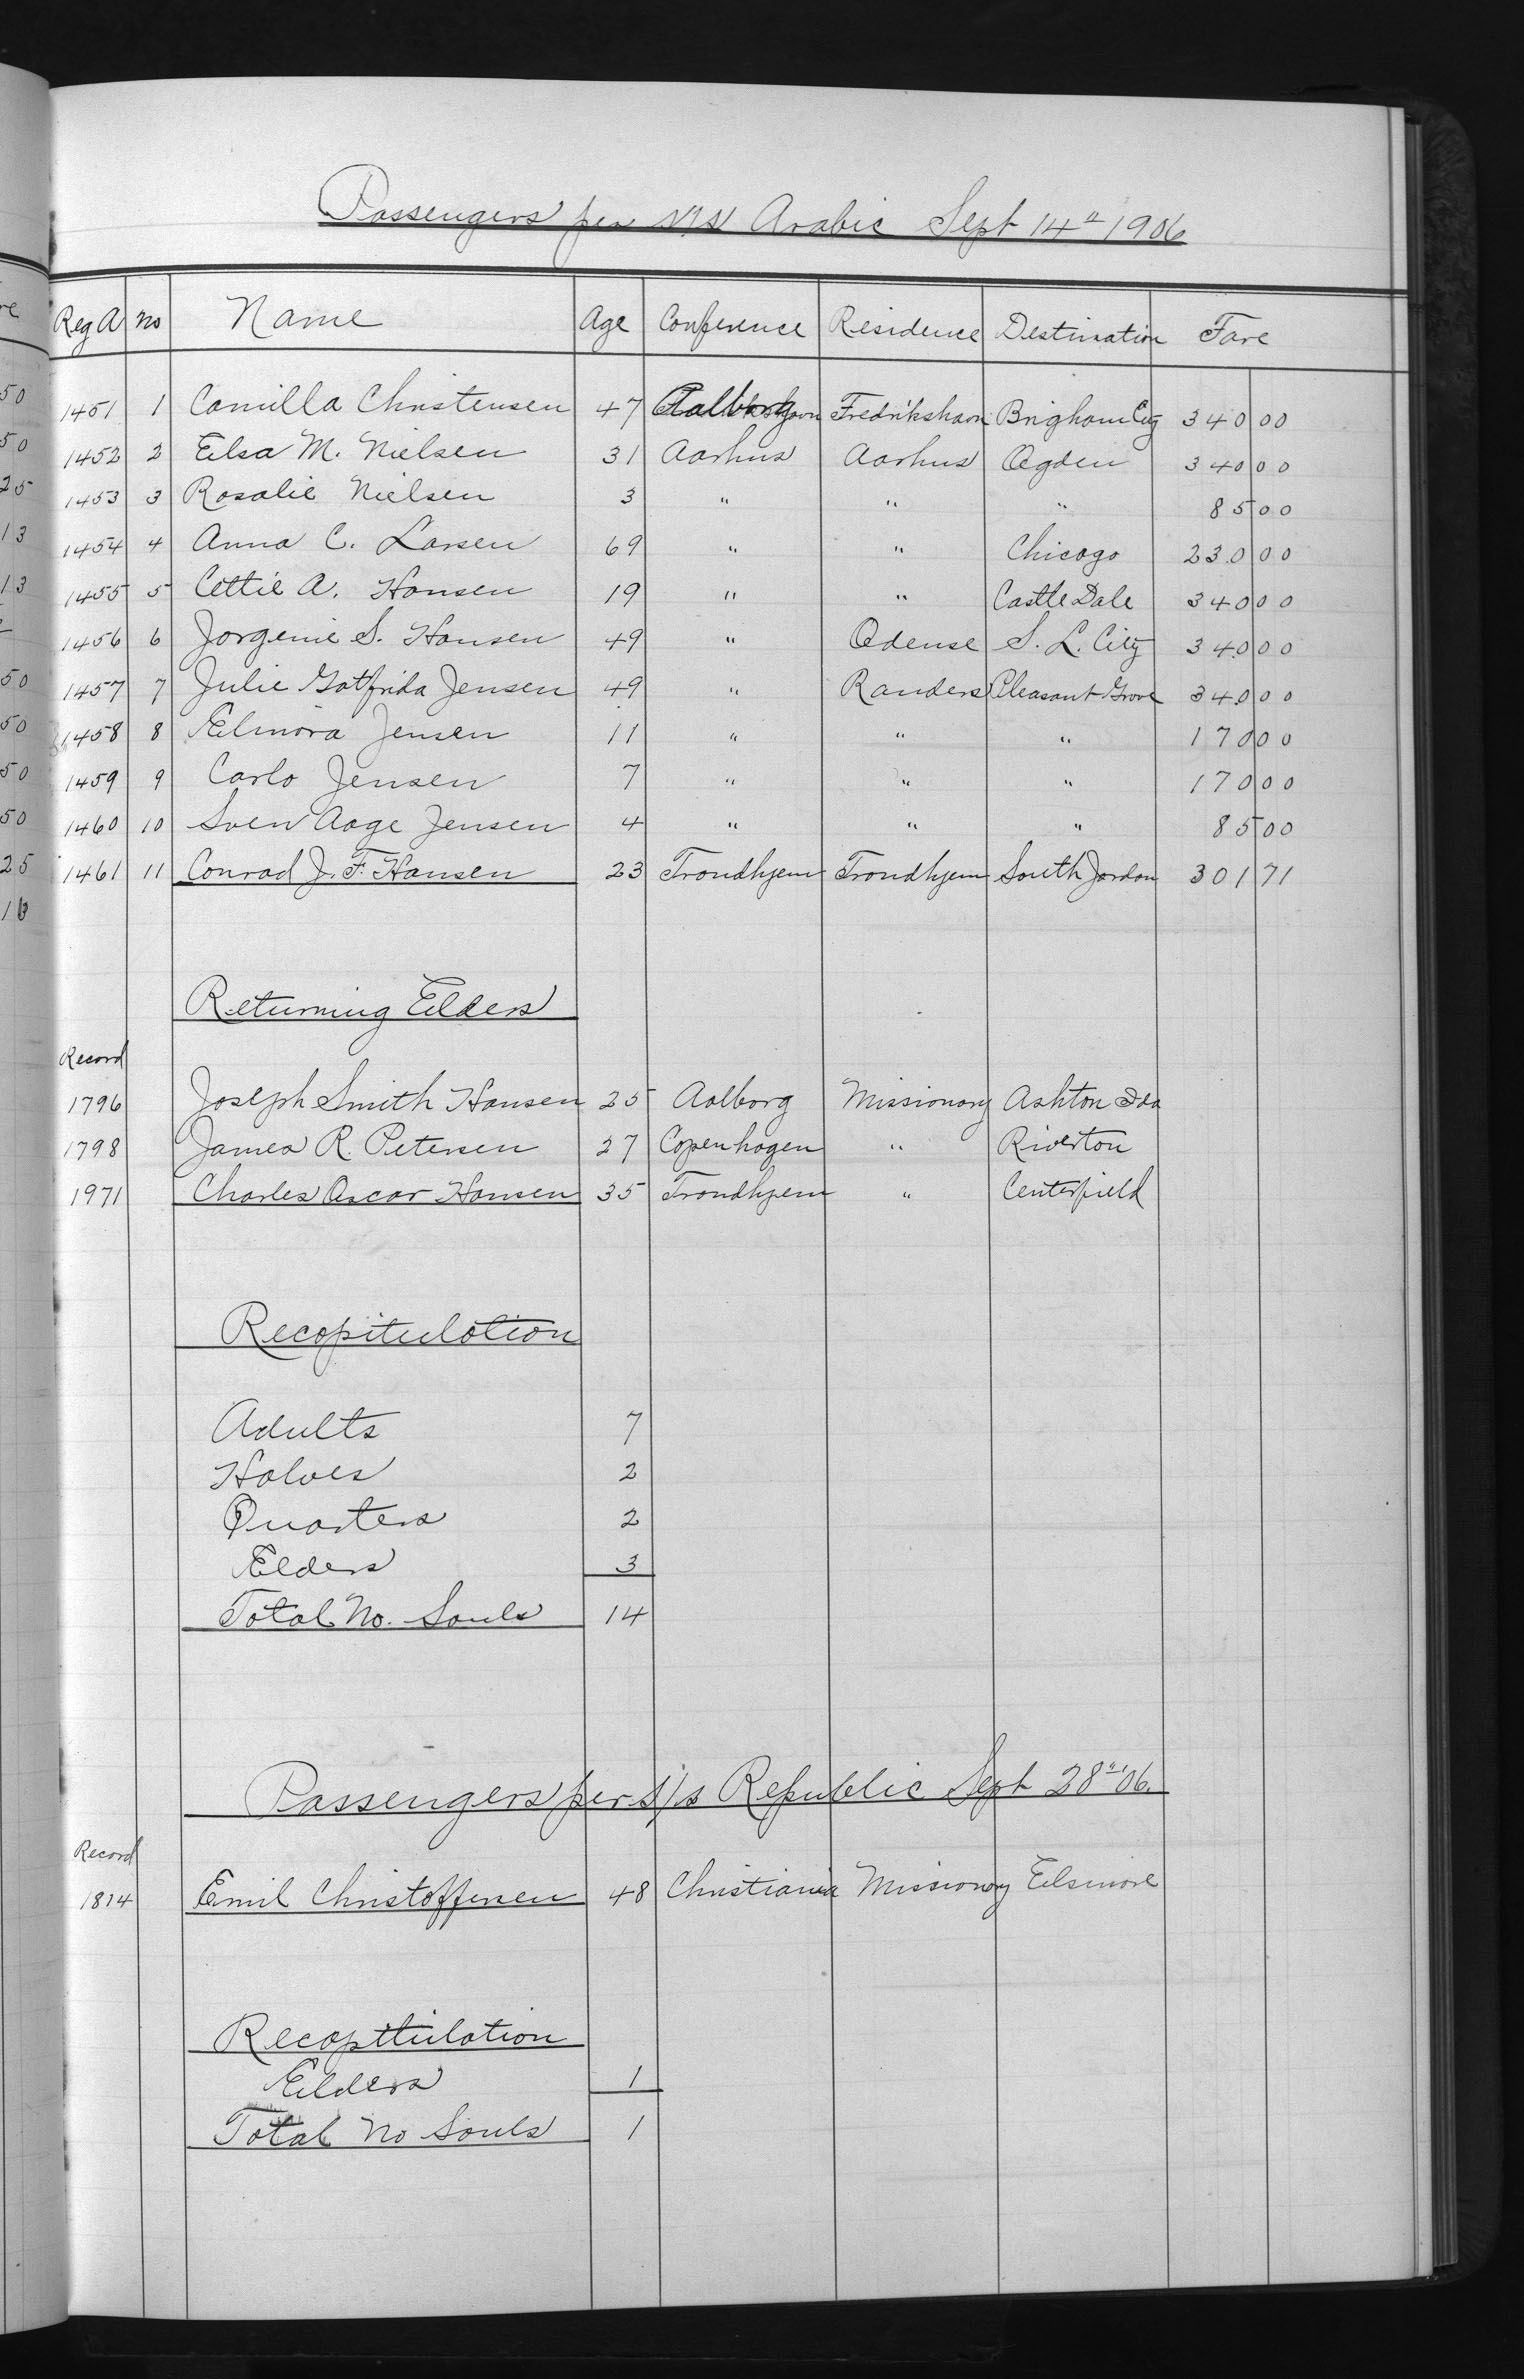 Passengers per S/S Arabic Sept 14" 1906
Reg A No Name Age Conference Residence Destination Fare
1451 1 Camilla Christensen 47 Aalborg Fredrikshavn Brigham City 340 00
1452 2 Elsa M. Nielsen 31 Aarhus Aarhus Ogden 340 00
1453 3 Rosalie Nielsen 3 " " " 85 00
1454 4 Anna C. Larsen 69 " " Chicago 230 00
1455 5 Cettie A. Hansen 19 " " Castle Dale 340 00
1456 6 Jorgenie S. Hansen 49 " Odense S. L. City 340 00
1457 7 Julie Gotfrida Jensen 49 " Randers Pleasant Grove 340 00
1458 8 Elinora Jensen 11 " " " 170 00
1459 9 Carlo Jensen 7 " " " 170 00
1460 10 Sven Aage Jensen 4 " " " 85 00
1461 11 Conrad J. F. Hansen 23 Trondhjem Trondhjem South Jordan 301 71
Returning Elders
Record
1796 Joseph Smith Hansen 25 Aalborg Missionary Ashton Ida
1798 James R. Petersen 27 Copenhagen " Riverton
1971 Charles Oscar Hansen 35 Trondhjem " Centerfield
Recapitulation
Adults 7
Halves 2
Quarters 2
Elders 3
Total No. Souls 14
Passengers per s/s Republic Sept 28" '06.
Record
1814 Emil Christoffersen 48 Christiania Missionary Elsinore
Recapitulation
Elders 1
Total No Souls 1